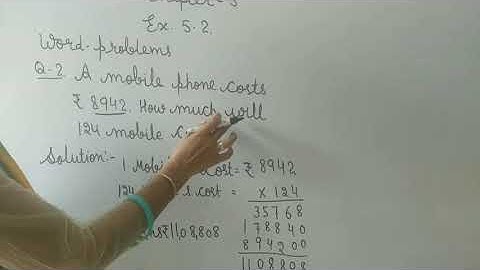 Ex. 5.2.
Word problems
Q-2 A mobile phone costs
₹ 8942. How much will
124 mobile
Solution:- 1 Mobi cost = ₹ 8942
124 s cost = × 124
35768
178840
₹11,08,808 894200
1108808